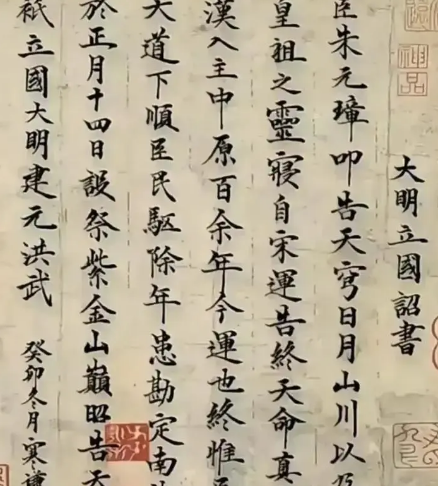 神品
大明立國詔書
臣朱元璋叩告天穹日月山川以及
皇祖之靈寢自宋運告終天命真
漢入主中原百余年今運也終惟
大道下順臣民駆除年患勘定南
於正月十四日設祭紫金山巔昭告天
祇立國大明建元洪武
癸卯冬月寒